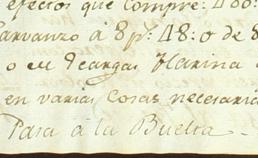 efectos que compre: 400:
arvanzo à 8 p: 48: o de 8
o cu Harina
en varias cosas necesaria
Pasa à la Buelta